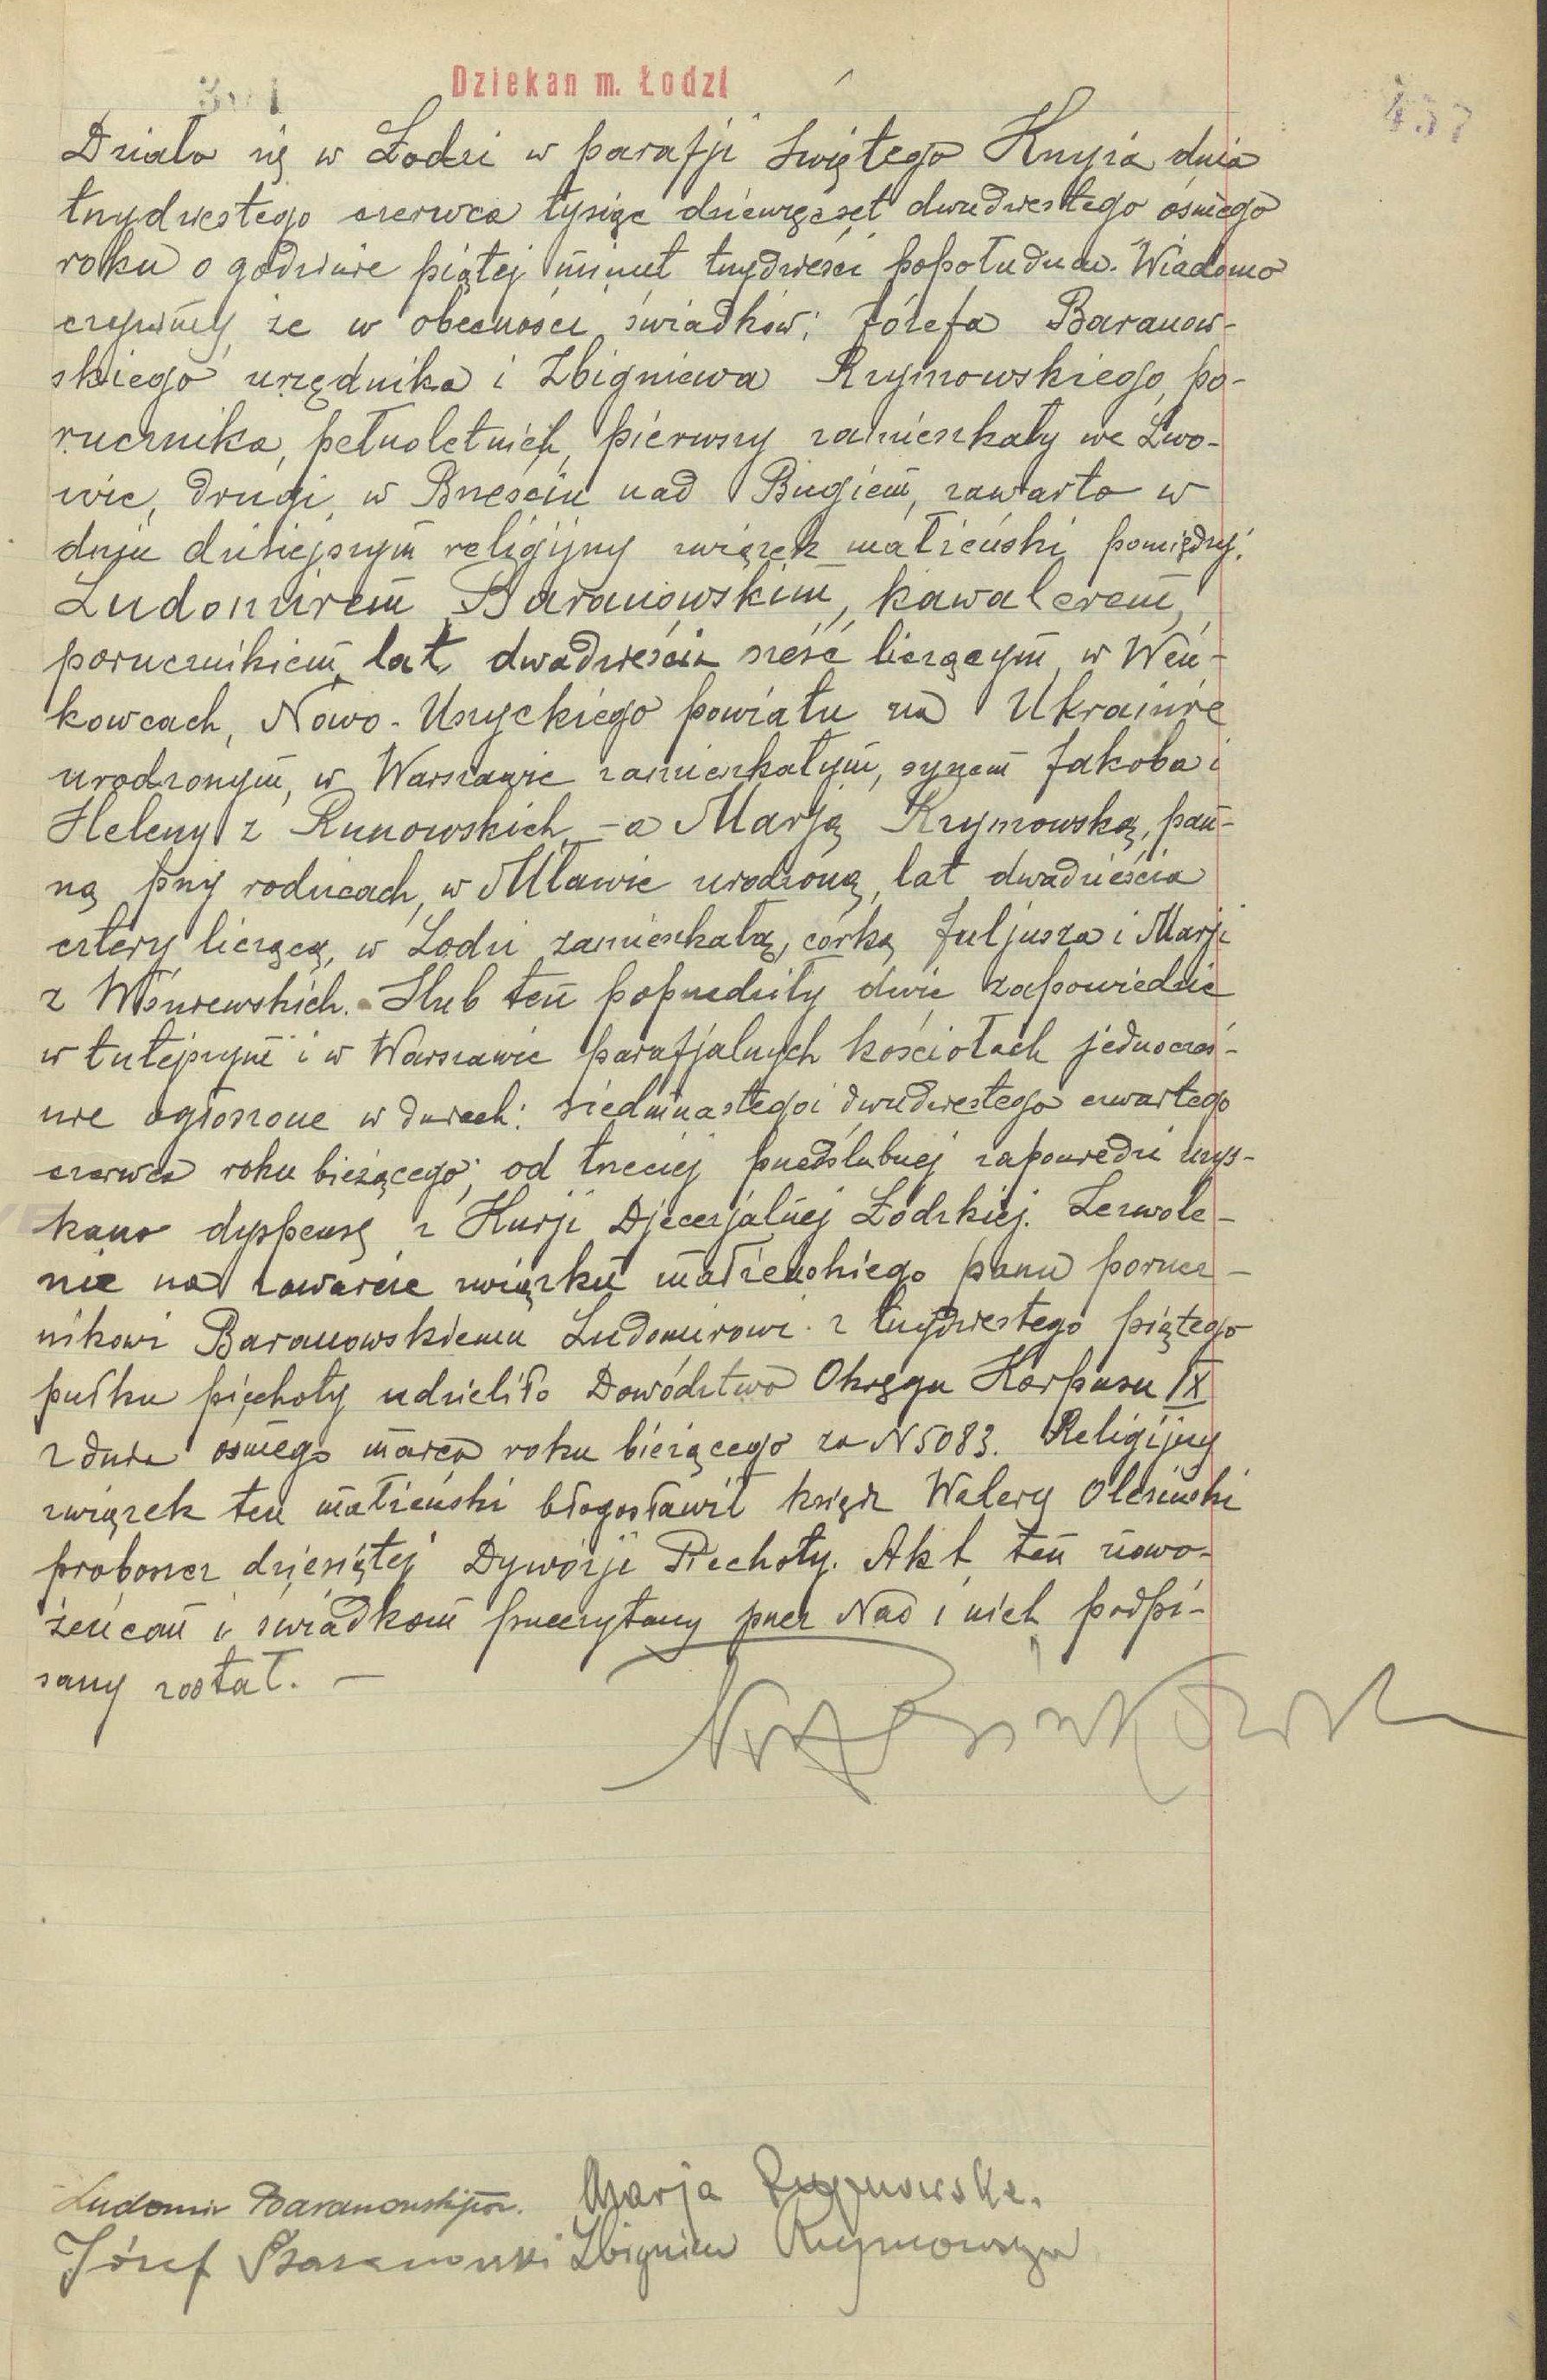 Dziekan m. Łodzi
457
Działo się w Łodzi w parafji Świętego Krzyża dnia
trzydziestego czerwca tysiąc dziewięćset dwudziestego ósmego
roku o godzinie piątej minut trzydzieści popołudniu. Wiadomo
czynimy, że w obecności świadków: Józefa Baranow-
skiego urzędnika i Zbigniewa Rzymowskiego, po-
rucznika, pełnoletnich, pierwszy zamieszkały we Lwo-
wie, drugi w Brześciu nad Bugiem, zawarto w
dniu dzisiejszym religijny związek małżeński pomiędzy:
Ludomirem Baranowskim, kawalerem,
porucznikiem, lat dwadzieścia sześć liczącym, w Weń-
kowcach, Nowo-Uszyckiego powiatu na Ukrainie
urodzonym, w Warszawie zamieszkałym, synem Jakóba i
Heleny z Runowskich, - a Marją Rzymowską, pan-
ną przy rodzicach, w Mławie urodzoną, lat dwadzieścia
cztery liczącą, w Łodzi zamieszkałą, córką Juljusza i Marji
z Wiśniewskich. - Ślub ten poprzedziły dwie zapowiedzie
w tutejszym i w Warszawie parafjalnych kościołach jednocześ-
nie ogłoszone w dniach: siedmnastego i dwudziestego czwartego
czerwca roku bieżącego; od trzeciej przedślubnej zapowiedzi uzys-
kano dyspensę z Kurji Djecezjalnej Łódzkiej. Zezwole-
nie na zawarcie związku małżeńskiego panu porucz-
nikowi Baranowskiemu Ludomirowi z trzydziestego piątego
pułku piechoty udzieliło Dowództwo Okręgu Korpusu IX
z dnia ósmego marca roku bieżącego za N 5083. Religijny
związek ten małżeński błogosławił ksiądz Walery Olesiński
proboszcz dziesiątej Dywizji Piechoty. Akt ten nowo-
żeńcom i świadkom przeczytany przez Nas i nich podpi-
sany został. —
Ludomir Baranowski por. Marja Rzymowska.
Józef Baranowski Zbigniew Rzymowski